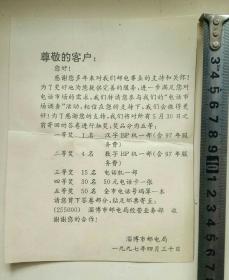 尊敬的客户：
您好！
感谢您多年来对我们邮电事业的支持和关怀！
为了更好地为您提供完善的服务，进一步满足您对
电话市场的需求，我们特请您参与我们的“电话市
场调查”活动，相信在您的支持下，我们会做得更
好！为了感谢您的支持，我们将对所有5月30日之
前寄回的答卷进行抽奖；奖品分为五等：
一等奖 1名 汉字BP机一部（含97年服
务费）
二等奖 4名 数字BP机一部（含97年服
务费）
三等奖 15名 电话机一部
四等奖 30名 50元电话卡一张
五等奖 50名 全市电话号码簿一本
请您剪下答卷部分，贴足邮票寄至：
(255000) 淄博市邮电局经营业务部 收
谢谢您的合作！
淄博市邮电局
一九九七年四月三十日